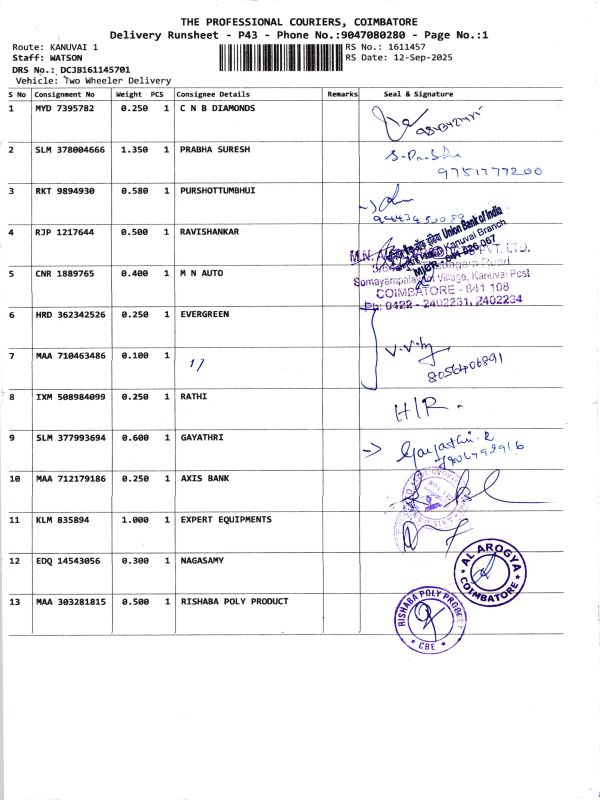 THE PROFESSIONAL COURIERS, COIMBATORE
Delivery Runsheet - P43 - Phone No.:9047080280 - Page No.:1
Route: KANUVAI 1 RS No.: 1611457
Staff: WATSON RS Date: 12-Sep-2025
DRS No.: DCJB161145701
Vehicle: Two Wheeler Delivery
S No Consignment No Weight PCS Consignee Details Remarks Seal & Signature
1 MYD 7395782 0.250 1 C N B DIAMONDS
2 SLM 378004666 1.350 1 PRABHA SURESH S. Prabha
9751777200
3 RKT 9894930 0.580 1 PURSHOTTUMBHUI
4 RJP 1217644 0.500 1 RAVISHANKAR
Union Bank of India
Kanuvai Branch
641 108
5 CNR 1889765 0.400 1 M N AUTO
PVT. LTD.
Village, Kanuvai Post
COIMBATORE - 641 108
Ph: 0422 - 2402231, 2402234
6 HRD 362342526 0.250 1 EVERGREEN
7 MAA 710463486 0.100 1 17
8056406891
8 IXM 508984099 0.250 1 RATHI H/R.
9 SLM 377993694 0.600 1 GAYATHRI Gayathri. R
10 MAA 712179186 0.250 1 AXIS BANK
11 KLM 835894 1.000 1 EXPERT EQUIPMENTS
12 EDQ 14543056 0.300 1 NAGASAMY
AL AROGYA
COIMBATORE
13 MAA 303281815 0.500 1 RISHABA POLY PRODUCT
RISHABA POLY PRODUCT
CBE